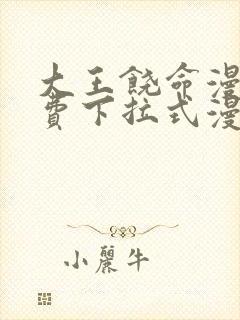 大王饶命漫
费下拉式漫
小麗牛